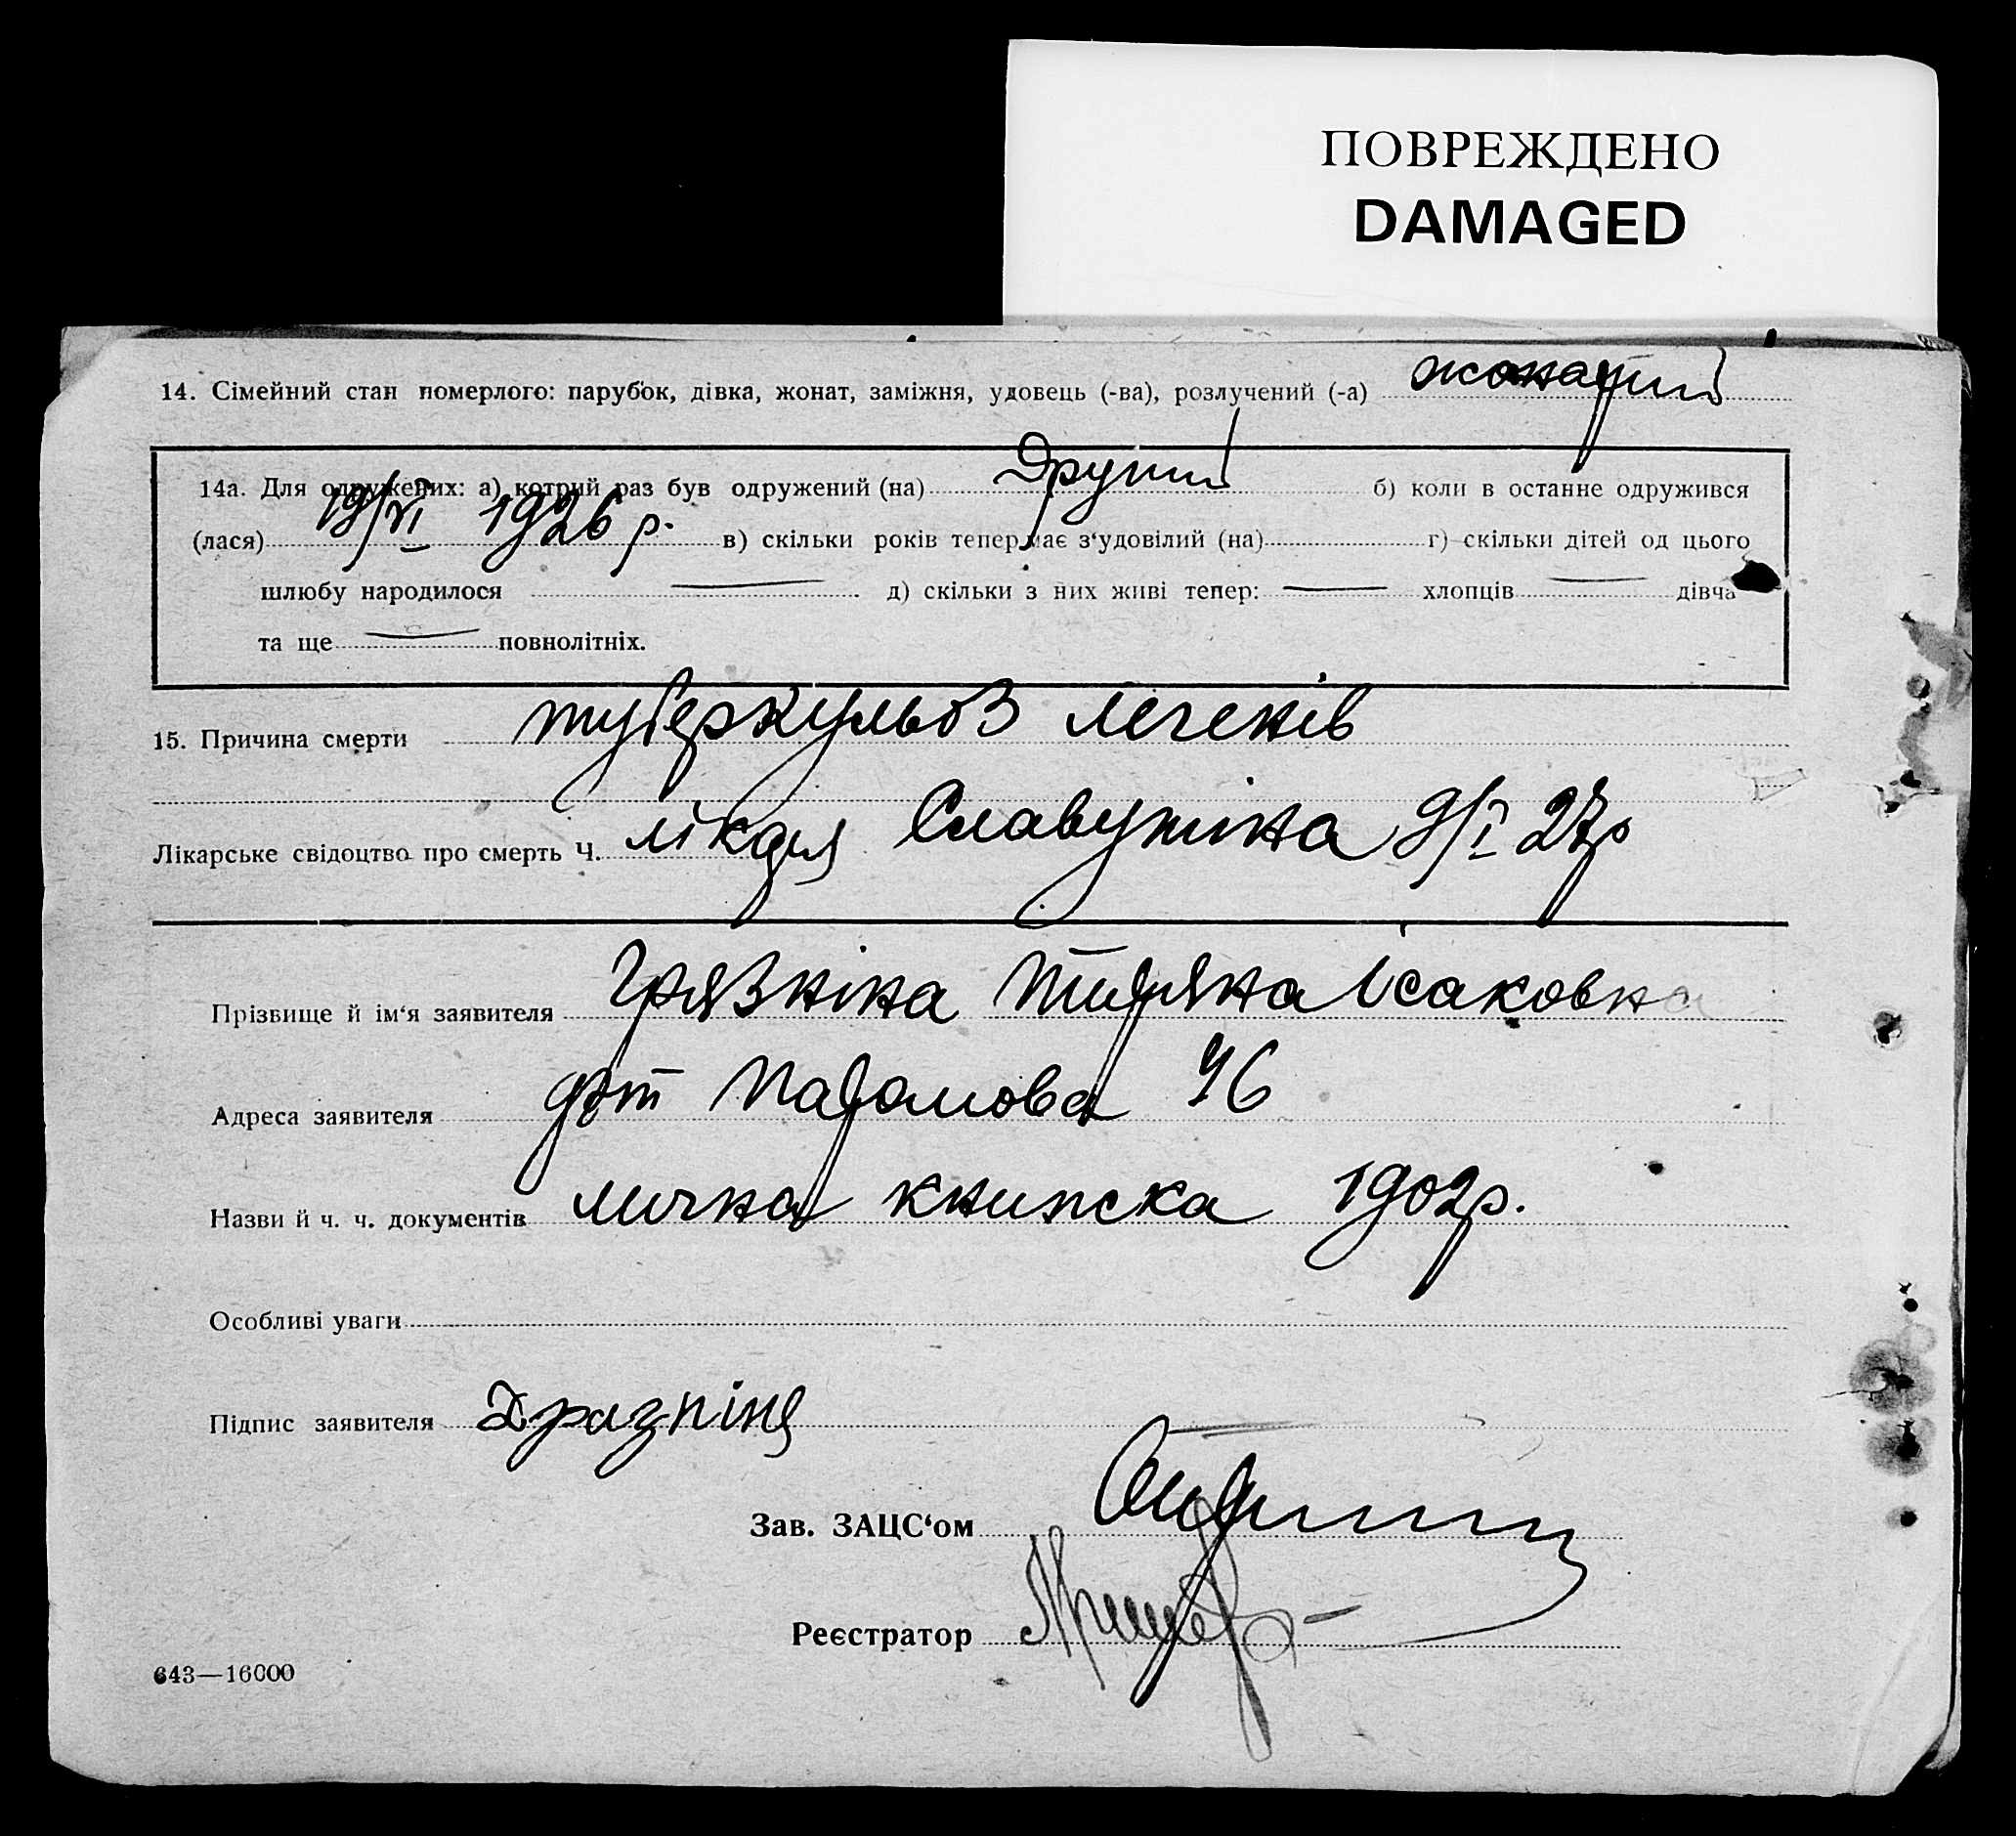 ПОВРЕЖДЕНО
DAMAGED
14. Сімейний стан померлого: парубок, дівка, жонат, заміжня, удовець (-ва), розлучений (-а) жонатий
14а. Для одружених: а) котрий раз був одружений (на) Другий б) коли в останне одружився
(лася) 19/VI 1926 р. в) скільки років тепер має з'удовілий (на) г) скільки дітей од цього
шлюбу народилося — д) скільки з них живі тепер: — хлопців — дівча
та ще — повнолітніх.
15. Причина смерти туберкульоз легенів
Лікарське свідоцтво про смерть Ч. лікаря 9/I 27р
Прізвище й ім'я заявителя Грязніна Ісаковна
Адреса заявителя Парамова 46
Назви й ч. ч. документів лична книжска 1902р.
Особливі уваги
Підпис заявителя
Зав. ЗАЦС'ом
Реєстратор
643—16000